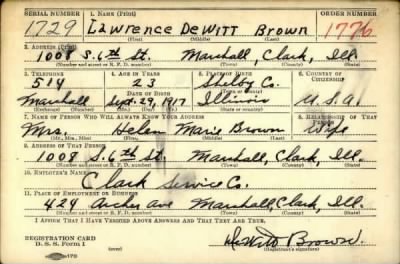 SERIAL NUMBER 1. NAME (Print) ORDER NUMBER
1729 LAWRENCE DEWITT BROWN 1776
(First) (Middle) (Last)
2. ADDRESS (Print)
1008 S. 6th St. Marshall, Clark, Ill.
(Number and street or R. F. D. number) (Town) (County) (State)
3. TELEPHONE 4. AGE IN YEARS 5. PLACE OF BIRTH 6. COUNTRY OF CITIZENSHIP
514 23 Shelby Co.
DATE OF BIRTH
Marshall Sept. 29, 1917 Illinois U.S.A.
(Exchange) (Number) (Mo.) (Day) (Yr.) (State or country)
7. NAME OF PERSON WHO WILL ALWAYS KNOW YOUR ADDRESS 8. RELATIONSHIP OF THAT PERSON
Mrs. Helen Marie Brown Wife
(Mr., Mrs., Miss) (First) (Middle) (Last)
9. ADDRESS OF THAT PERSON
1008 S. 6th St. Marshall, Clark, Ill.
(Number and street or R. F. D. number) (Town) (County) (State)
10. EMPLOYER'S NAME
Clark Service Co.
11. PLACE OF EMPLOYMENT OR BUSINESS
424 Archer Ave Marshall, Clark, Ill.
(Number and street or R. F. D. number) (Town) (County) (State)
I AFFIRM THAT I HAVE VERIFIED ABOVE ANSWERS AND THAT THEY ARE TRUE.
REGISTRATION CARD
D. S. S. Form 1 DeWitt Brown
(Registrant's signature)